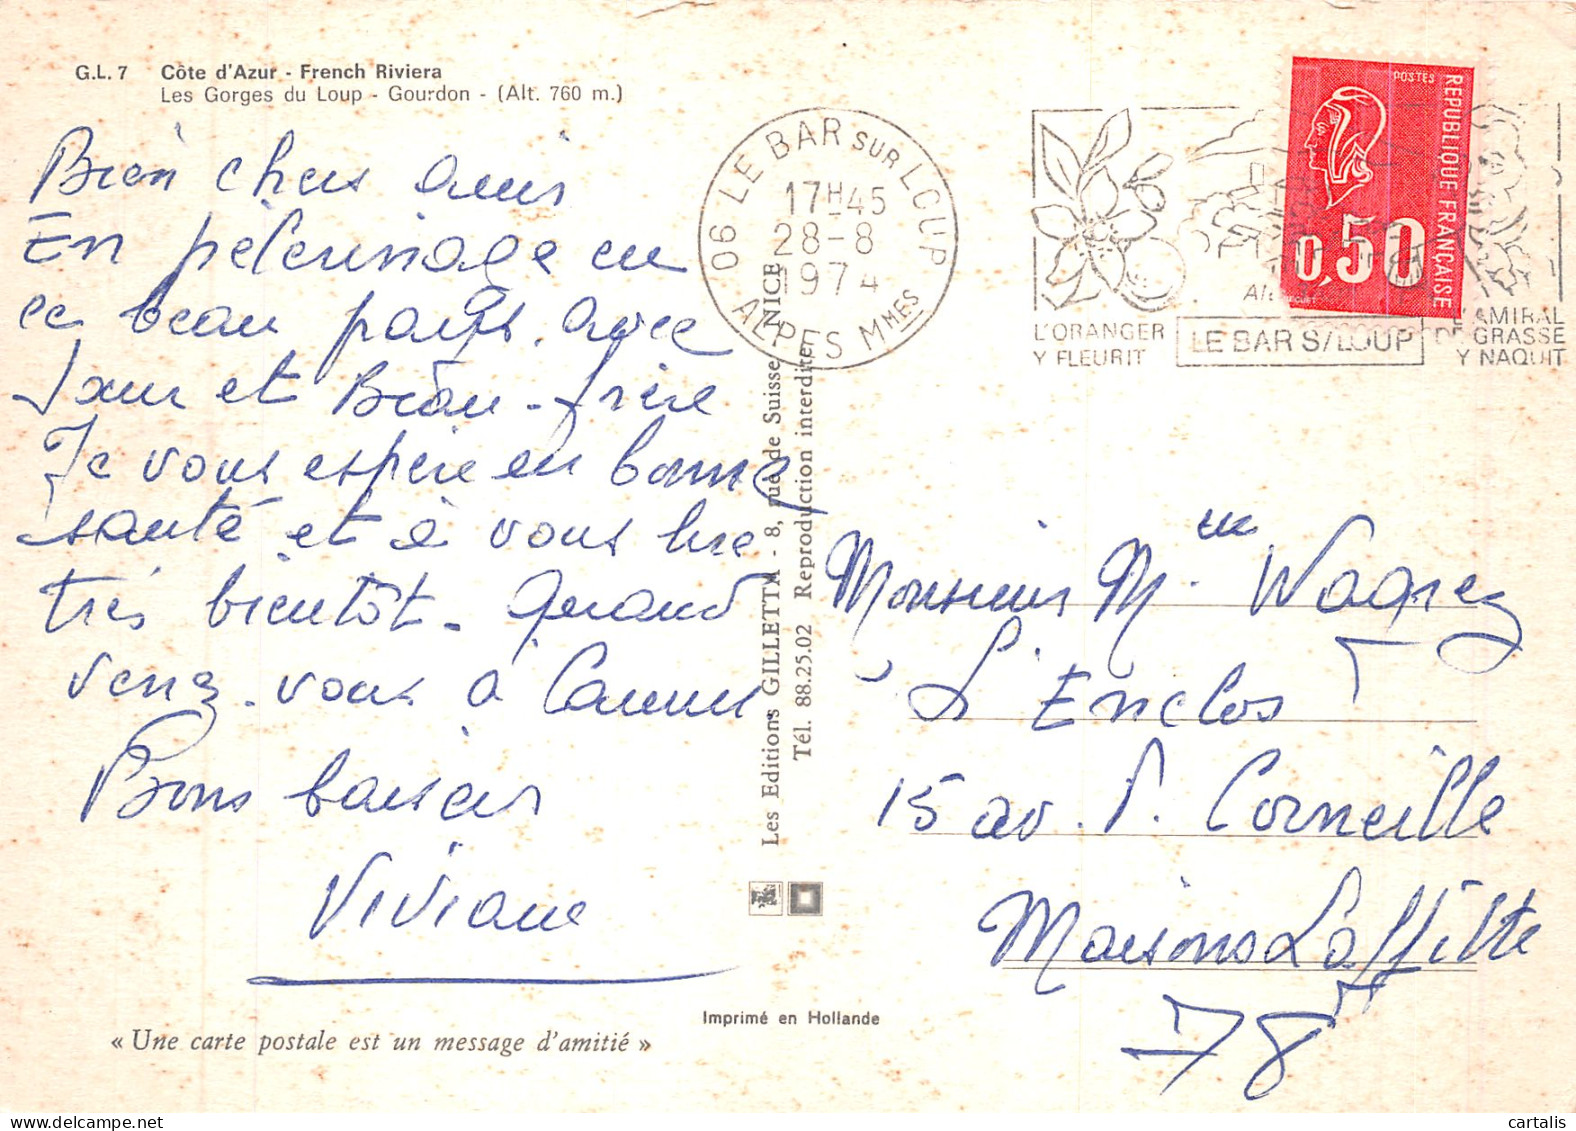 G.L. 7 Côte d'Azur - French Riviera
Les Gorges du Loup - Gourdon - (Alt. 760 m.)
Bien chers amis
En pèlerinage en
ce beau pays, avec
sœur et Beau-frère
Je vous espère en bonne
santé et à vous lire
très bientôt. Quand
venez-vous à Cannes
Bons baisers
Viviane
« Une carte postale est un message d'amitié »
Les Editions GILLETTA - 8, rue de Suisse, NICE
Tél. 88.25.02 Reproduction interdite
Imprimé en Hollande
06 LE BAR SUR LOUP
17H45
28-8
1974
ALPES MMES
L'ORANGER
Y FLEURIT
LE BAR S/LOUP
L'AMIRAL
DE GRASSE
Y NAQUIT
POSTES
REPUBLIQUE FRANÇAISE
0,50
Monsieur M.
L'Enclos
15 av. P. Corneille
Maisons Laffitte
78